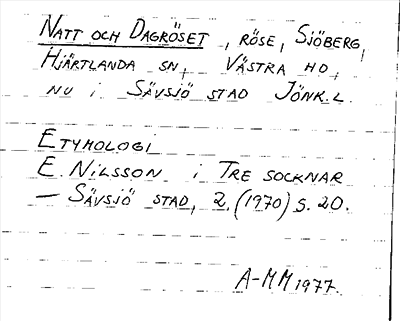 NATT OCH DAGRÖSET, RÖSE, SJÖBERG,
HJÄRTLANDA SN, VÄSTRA HD,
NU i SÄVSJÖ STAD JÖNK.L.
ETYMOLOGI
E. NILSSON i TRE SOCKNAR
— SÄVSJÖ STAD, 2. (1970) S. 20.
A-MM 1977.